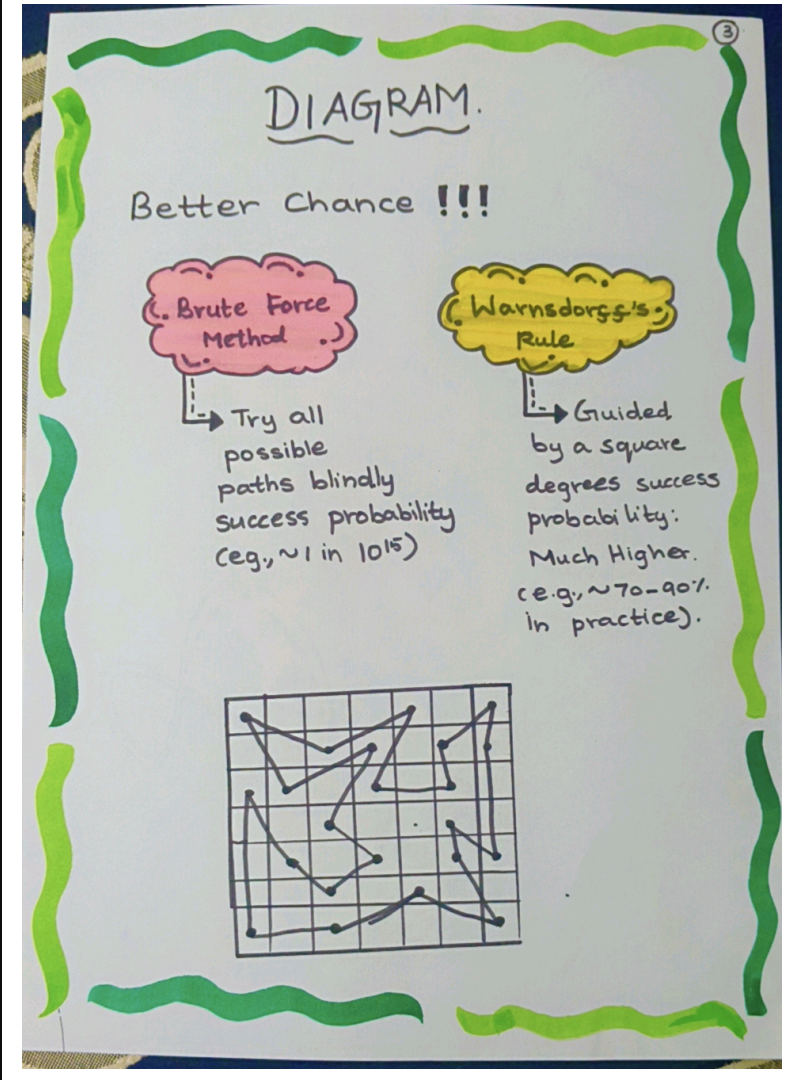 3
DIAGRAM.
Better Chance !!!
Brute Force
Method
Try all
possible
paths blindly
success probability
(eg., ~1 in 10¹⁵)
Warnsdorff's
Rule
Guided
by a square
degrees success
probability:
Much Higher.
(e.g., ~70-90%
in practice).